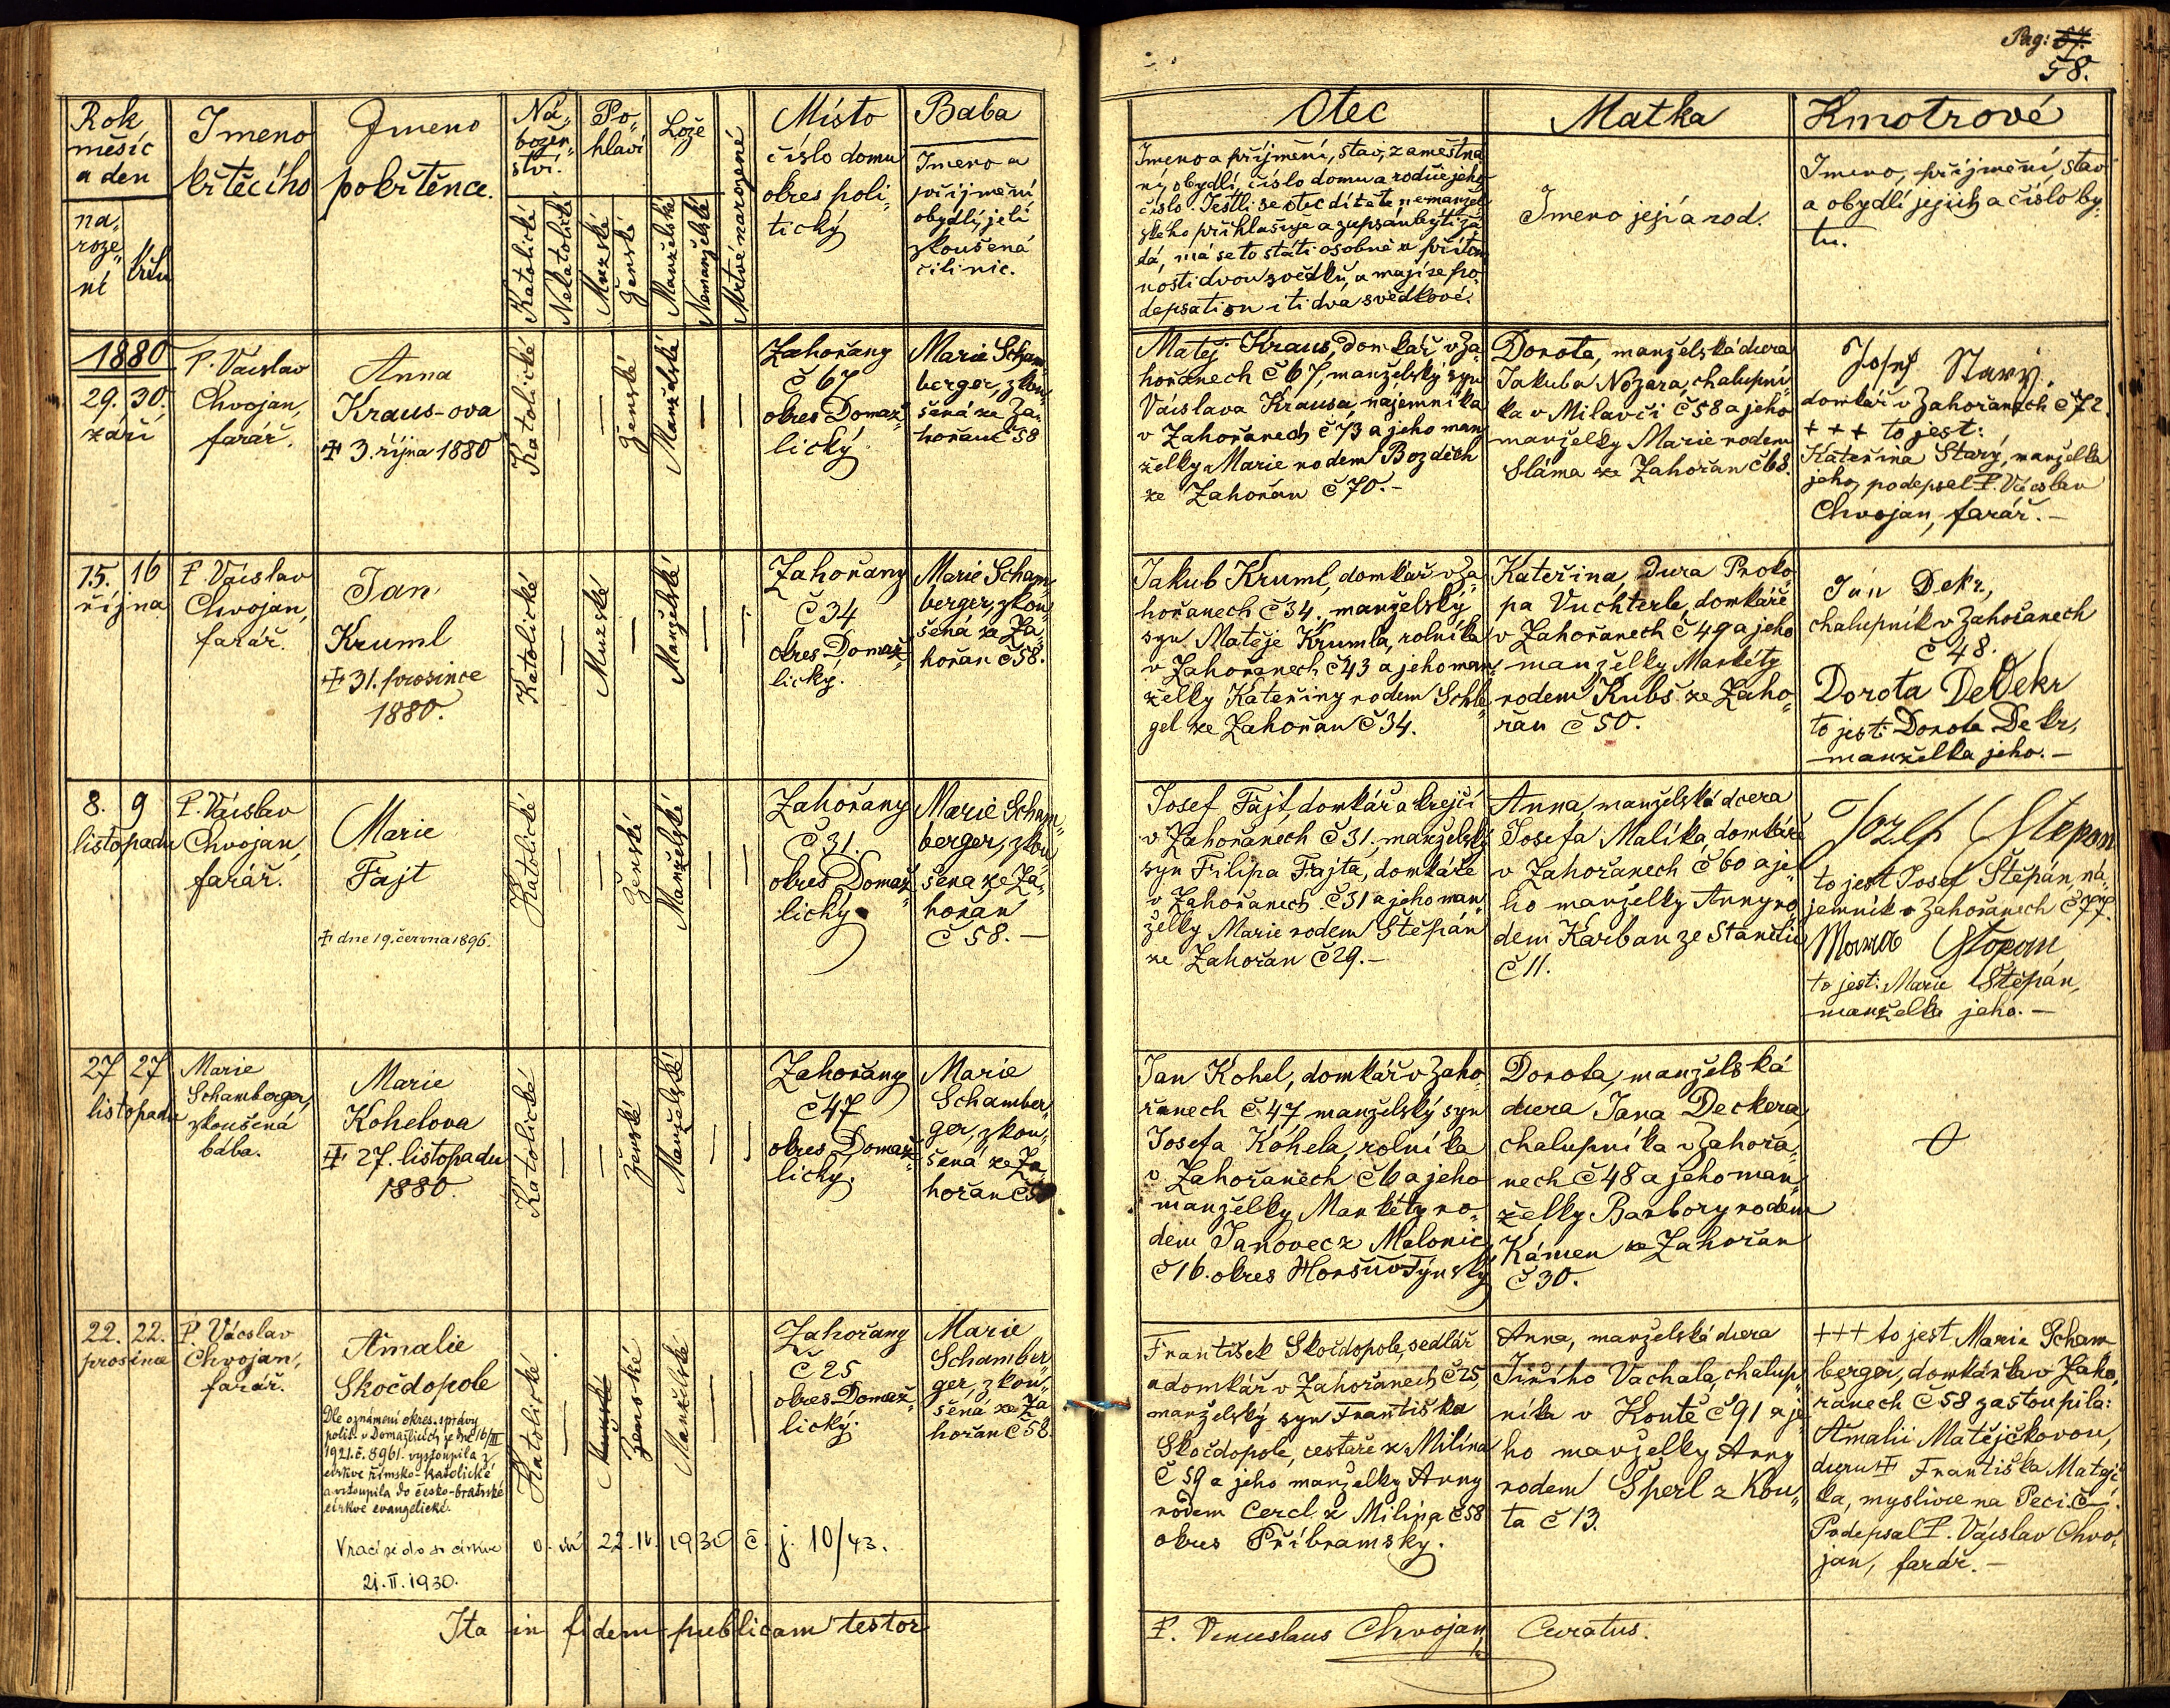 Pag: 57.
58.
Rok
měsíc
a den
na„
roze„
ní
křtu
Jmeno
křtěcího
Jmeno
pokřtěnce.
Ná„
božen„
ství.
Katolické
Nekatolické
Po„
hlaví
Mužské
Ženské
Lože
Manželské
Nemanželské
Mrtvě narozené
Místo
číslo domu
okres poli„
tický
Baba
Jmeno a
příjmění
obydlí, je-li
zkoušená
čili nic.
Otec
Jmeno a příjmění, stav, zaměstna„
ní, obydlí, číslo domu a rodiče jeho
číslo. Jestli se otec dítěte nemanžel„
ského přihlašuje a zapsán býti žá„
dá, má se to státi osobně u přítom„
nosti dvou svědků, a mají se po„
depsati on i ti dva svědkové.
Matka
Jmeno její a rod.
Kmotrové
Jmeno, příjmění, stav
a obydlí jejich a číslo by„
tu.
1880
29. 30.
září
P. Václav
Chvojan,
farář.
Anna
Kraus-ova
‡ 3. října 1880
Katolické
Ženské
Manželské
Zahořany
č 67
okres Domaž„
lický
Marie Scham„
berger, zkou„
šená ze Za„
hořan č 58
Matěj Kraus, domkář v Za„
hořanech č 67, manželský syn
Václava Krausa, nájemníka
v Zahořanech č 73 a jeho man„
želky Marie rodem Bozděch
ze Zahořan č 70.-
Dorota, manželská dcera
Jakuba Nozara, chalupní„
ka v Milavči č 58 a jeho
manželky Marie rodem
Sláma ze Zahořan č 68.
Josef Starý,
domkář v Zahořanech č 72.
+++ to jest:
Kateřina Starý, manželka
jeho, podepsal P. Václav
Chvojan, farář.-
15. 16
října
P. Václav
Chvojan,
farář.
Jan
Kruml
‡ 31. prosince
1880.
Katolické
Mužské
Manželské
Zahořany
č 34
okres Domaž„
lický.
Marie Scham„
berger, zkou„
šená ze Za„
hořan č 58.
Jakub Kruml, domkář v Za„
hořanech č 34, manželský
syn Matěje Krumla, rolníka
v Zahořanech č 43 a jeho man„
želky Kateřiny rodem Schle„
gel ze Zahořan č 34.
Kateřina, dcera Proko„
pa Vuchterle, domkáře
v Zahořanech č 49 a jeho
manželky Markéty
rodem Kubs ze Zaho„
řan č 50.
Ján Dekr,
chalupník v Zahořanech
č 48.
Dorota DeDekr
to jest: Dorota Dekr,
manželka jeho.-
8. 9
listopadu
P. Václav
Chvojan,
farář.
Marie
Fajt
‡ dne 19. června 1896.
Katolické
Ženské
Manželské
Zahořany
č 31.
okres Domaž„
lický.
Marie Scham„
berger, zkou„
šená ze Za„
hořan
č 58.-
Josef Fajt, domkář a krejčí
v Zahořanech č 31, manželský
syn Filipa Fajta, domkáře
v Zahořanech č 31 a jeho man„
želky Marie rodem Štěpán
ze Zahořan č 29.-
Anna, manželská dcera
Josefa Malíka, domkáře
v Zahořanech č 60 a je„
ho manželky Anny ro„
dem Karban ze Stanětic
č 11.
Jozef Stepan
to jest Josef Štěpán, ná„
jemník v Zahořanech č 77.
to jest: Marie Štěpán,
manželka jeho.-
27 27
listopadu
Marie
Schamberger,
zkoušená
bába.
Marie
Kohelova
‡ 27. listopadu
1880.
Katolické
Ženské
Manželské
Zahořany
č 47
okres Domaž„
lický.
Marie
Schamber„
ger, zkou„
šená ze Za„
hořan č 58
Jan Kohel, domkář v Zaho„
řanech č 47 manželský syn
Josefa Kohela, rolníka
v Zahořanech č 6 a jeho
manželky Markéty ro„
dem Janovec z Malonic
č 16. okres HoršůvTýnský
Dorota, manželská
dcera Jana Deckera,
chalupníka v Zahořa„
nech č 48 a jeho man„
želky Barbory rodem
Kámen ze Zahořan
č 30.
22. 22.
prosince
P. Václav
Chvojan,
farář.
Amalie
Skočdopole
Dle oznámení okres. správy
polit. v Domažlicích ze dne 16/III
1921. č. 8961. vystoupila z
církve římsko-katolické
a vstoupila do česko-bratrské
církve evangelické.
Vrací se do sv. církve
21. II. 1930.
22. IV. 1930 č. j. 10/43.
Katolické
Mužské
Ženské
Manželské
Zahořany
č 25
okres Domaž„
lický.
Marie
Schamber„
ger, zkou„
šená ze Za„
hořan č 58.
František Skočdopole, sedlář
a domkář v Zahořanech č 25,
manželský syn Františka
Skočdopole, cestáře z Milína
č 59 a jeho manželky Anny
rodem Cercl z Milína č 58
okres Příbramský.
Anna, manželská dcera
Jiřího Vachala, chalup„
níka v Koutě č 91 a je„
ho manželky Anny
rodem Šperl z Kou„
ta č 13.
+++ to jest Marie Scham„
berger, domkářka v Zaho„
řanech č 58 zastoupila:
Amalii Matějčkovou,
dceru ‡ Františka Matějč„
ka, myslivce na Peci č –.
Podepsal P. Václav Chvo„
jan, farář.-
Ita in fidem publicam testor
P. Venceslaus Chvojan, Curatus.